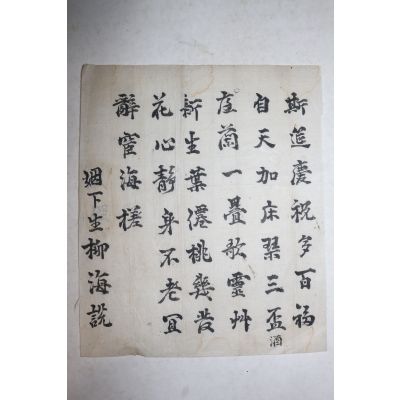 斯筵慶祝多百福
自天加床琴三盃酒
庭蘭一疊歌靈艸
新生葉僊桃幾發
花心靜身不老冝
辭海槎
姻下生柳海說